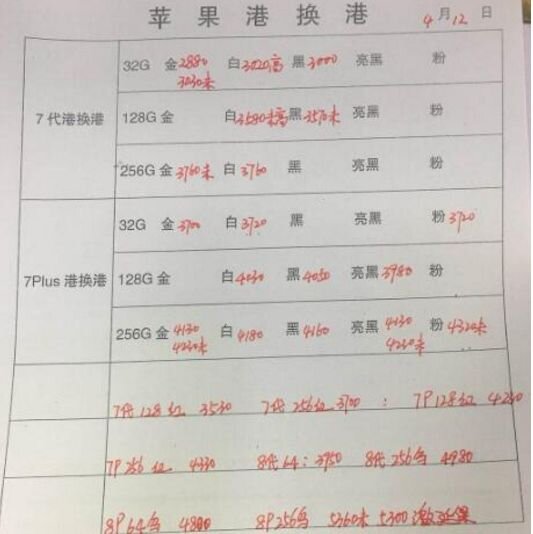 苹果港换港 4月12日
7代港换港
32G 金2880 白3020高 黑3000 亮黑 粉
3030未
128G金 白3580未高 黑3570未 亮黑 粉
256G金3760未 白3760 黑 亮黑 粉
7Plus港换港
32G 金3700 白3720 黑 亮黑 粉3720
128G金 白4030 黑4050 亮黑3980 粉
256G金4130 白4180 黑4160 亮黑4130 粉4320未
4230未 4230未
7代128红 3530 7代256红 3700 : 7P128红 4230
7P256红 4330 8代64:3950 8代256 4980
8P64 4800 8P256 5360未 5300激